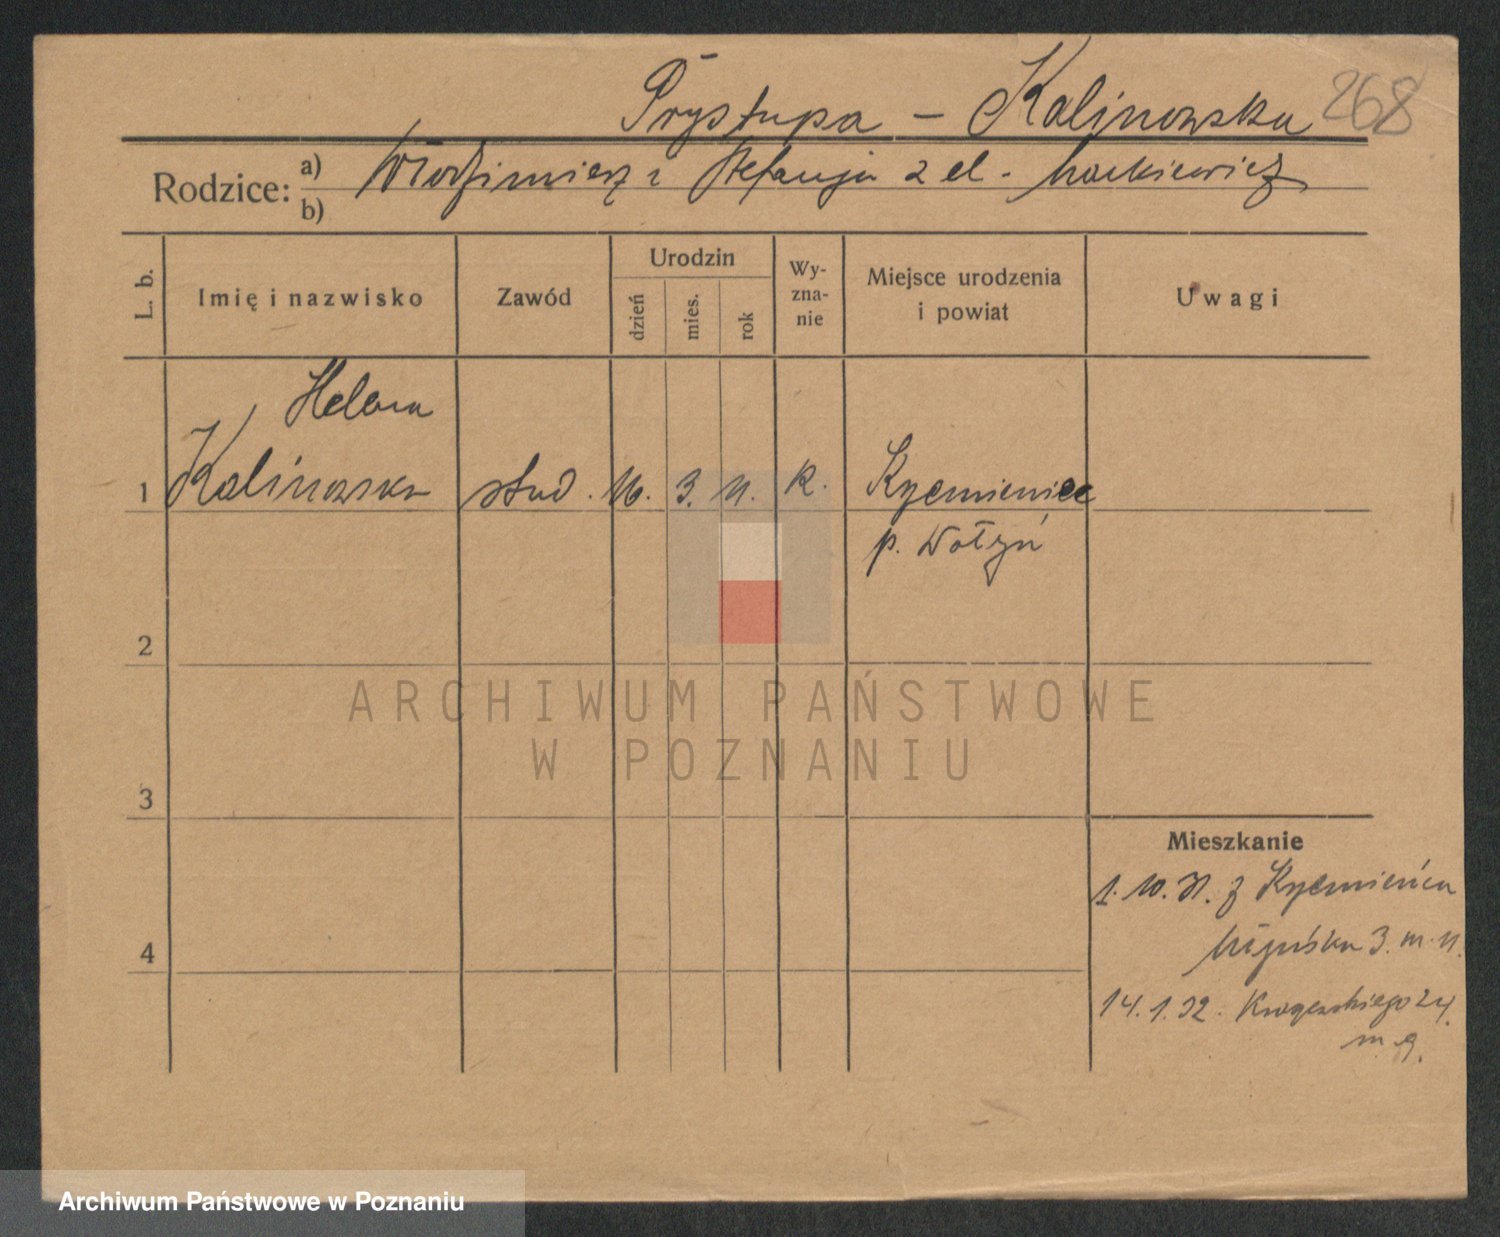 Prystupa - Kalinowska 268
Rodzice: a) Włodzimierz i Stefanja z d. Mackiewicz
b)
L. b. Imię i nazwisko Zawód Urodzin dzień mies. rok Wy-zna-nie Miejsce urodzenia i powiat Uwagi
Helena
1 Kalinowska stud. 16. 3. 11. k. Krzemieniec
p. Wołyń
2
ARCHIWUM PAŃSTWOWE
W POZNANIU
3
Mieszkanie
1. 10. 31. z Krzemieńca
3. m. 11.
4
14. 1. 32. 24.
m 9.
Archiwum Państwowe w Poznaniu